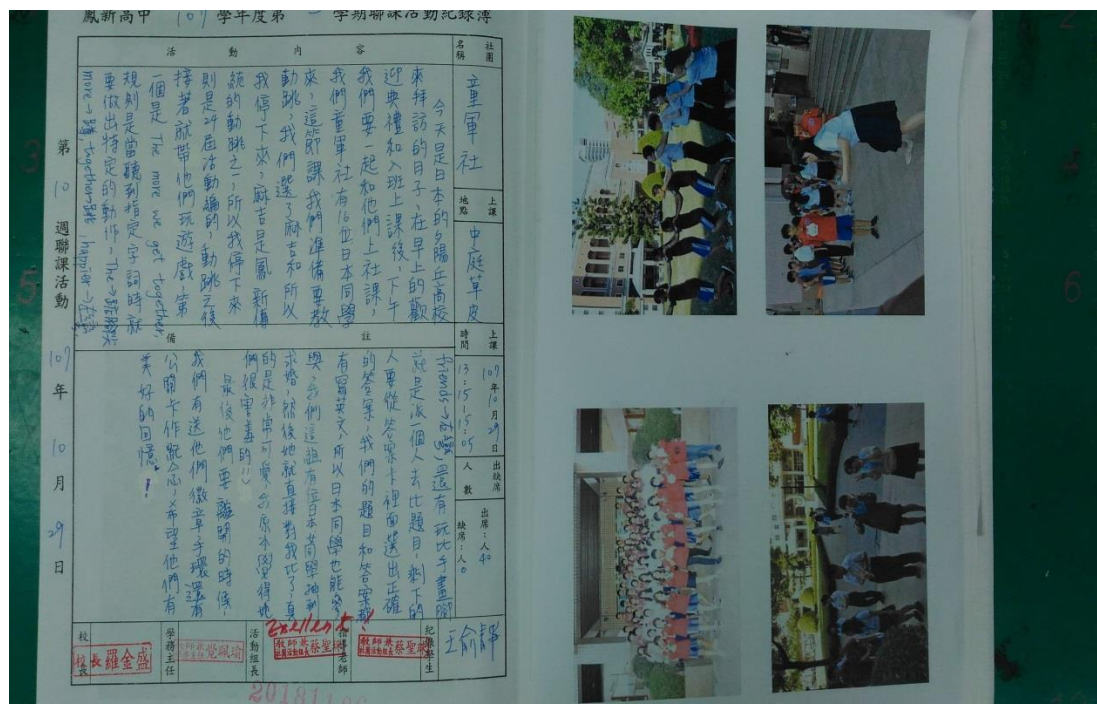 鳳新高中 107 學年度第一學期聯課活動紀錄簿
社團名稱
童軍社
上課地點
中庭草皮
上課時間
107年10月29日
13:15-15:05
出缺席人數
出席:人40
缺席:人0
紀錄學生
王俞靜
活動內容
今天是日本的夕陽丘高校
來拜訪的日子,在早上的歡
迎典禮和入班上課後,下午
我們要一起和他們上社課,
我們童軍社有16位日本同學
來,這節課我們準備要教
動跳,我們選了麻吉和所以
我停下來,麻吉是鳳新傳
統的動跳之一,所以我停下來
則是24屆活動編的,動跳之後
接著就帶他們玩遊戲,第
一個是 The more we get together,
規則是當聽到指定字詞時就
要做出特定的動作,The→
more→蹲, together→ , happier→
備註
friends→ 還有玩比手畫腳
就是派一個人去比題目,剩下的
人要從答案卡裡面選出正確
的答案,我們的題目和答案都
有寫英文,所以日本同學也能參
與,我們這組有位日本同學抽到
求婚,然後她就直接對我比了,真
的是非常可愛,我原本以為她
們很害羞的!!
最後他們要離開的時候,
我們有送他們徽章手環還有
公關卡作紀念,希望他們有
美好的回憶!
指導老師
教師兼社團活動組長蔡聖
活動組長
教師兼社團活動組長蔡聖
學務主任
校長
校長羅金盛
第10週聯課活動
107年10月29日